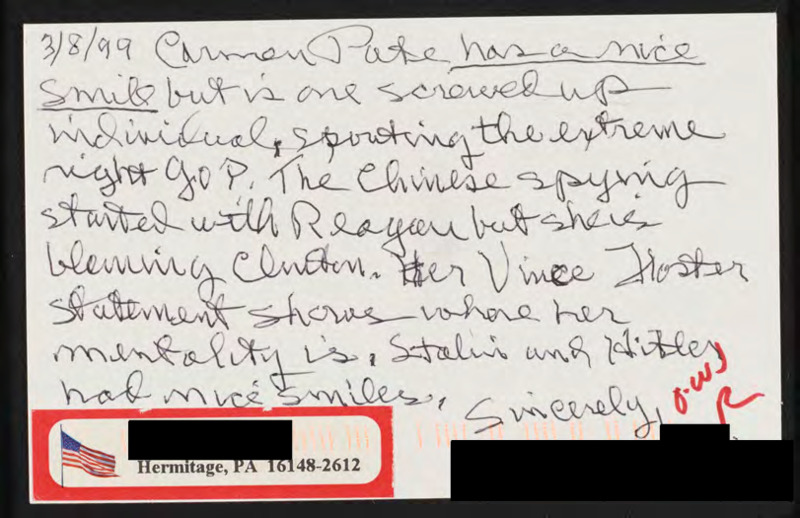 3/8/99 Carmen Pate has a nice
smile but is one screwed up
individual, spouting the extreme
right GOP. The Chinese spying
started with Reagan but she is
blaming Clinton. Her Vince Foster
statement shows where her
mentality is. Stalin and Hitler
had nice smiles.
Sincerely,
Hermitage, PA 16148-2612